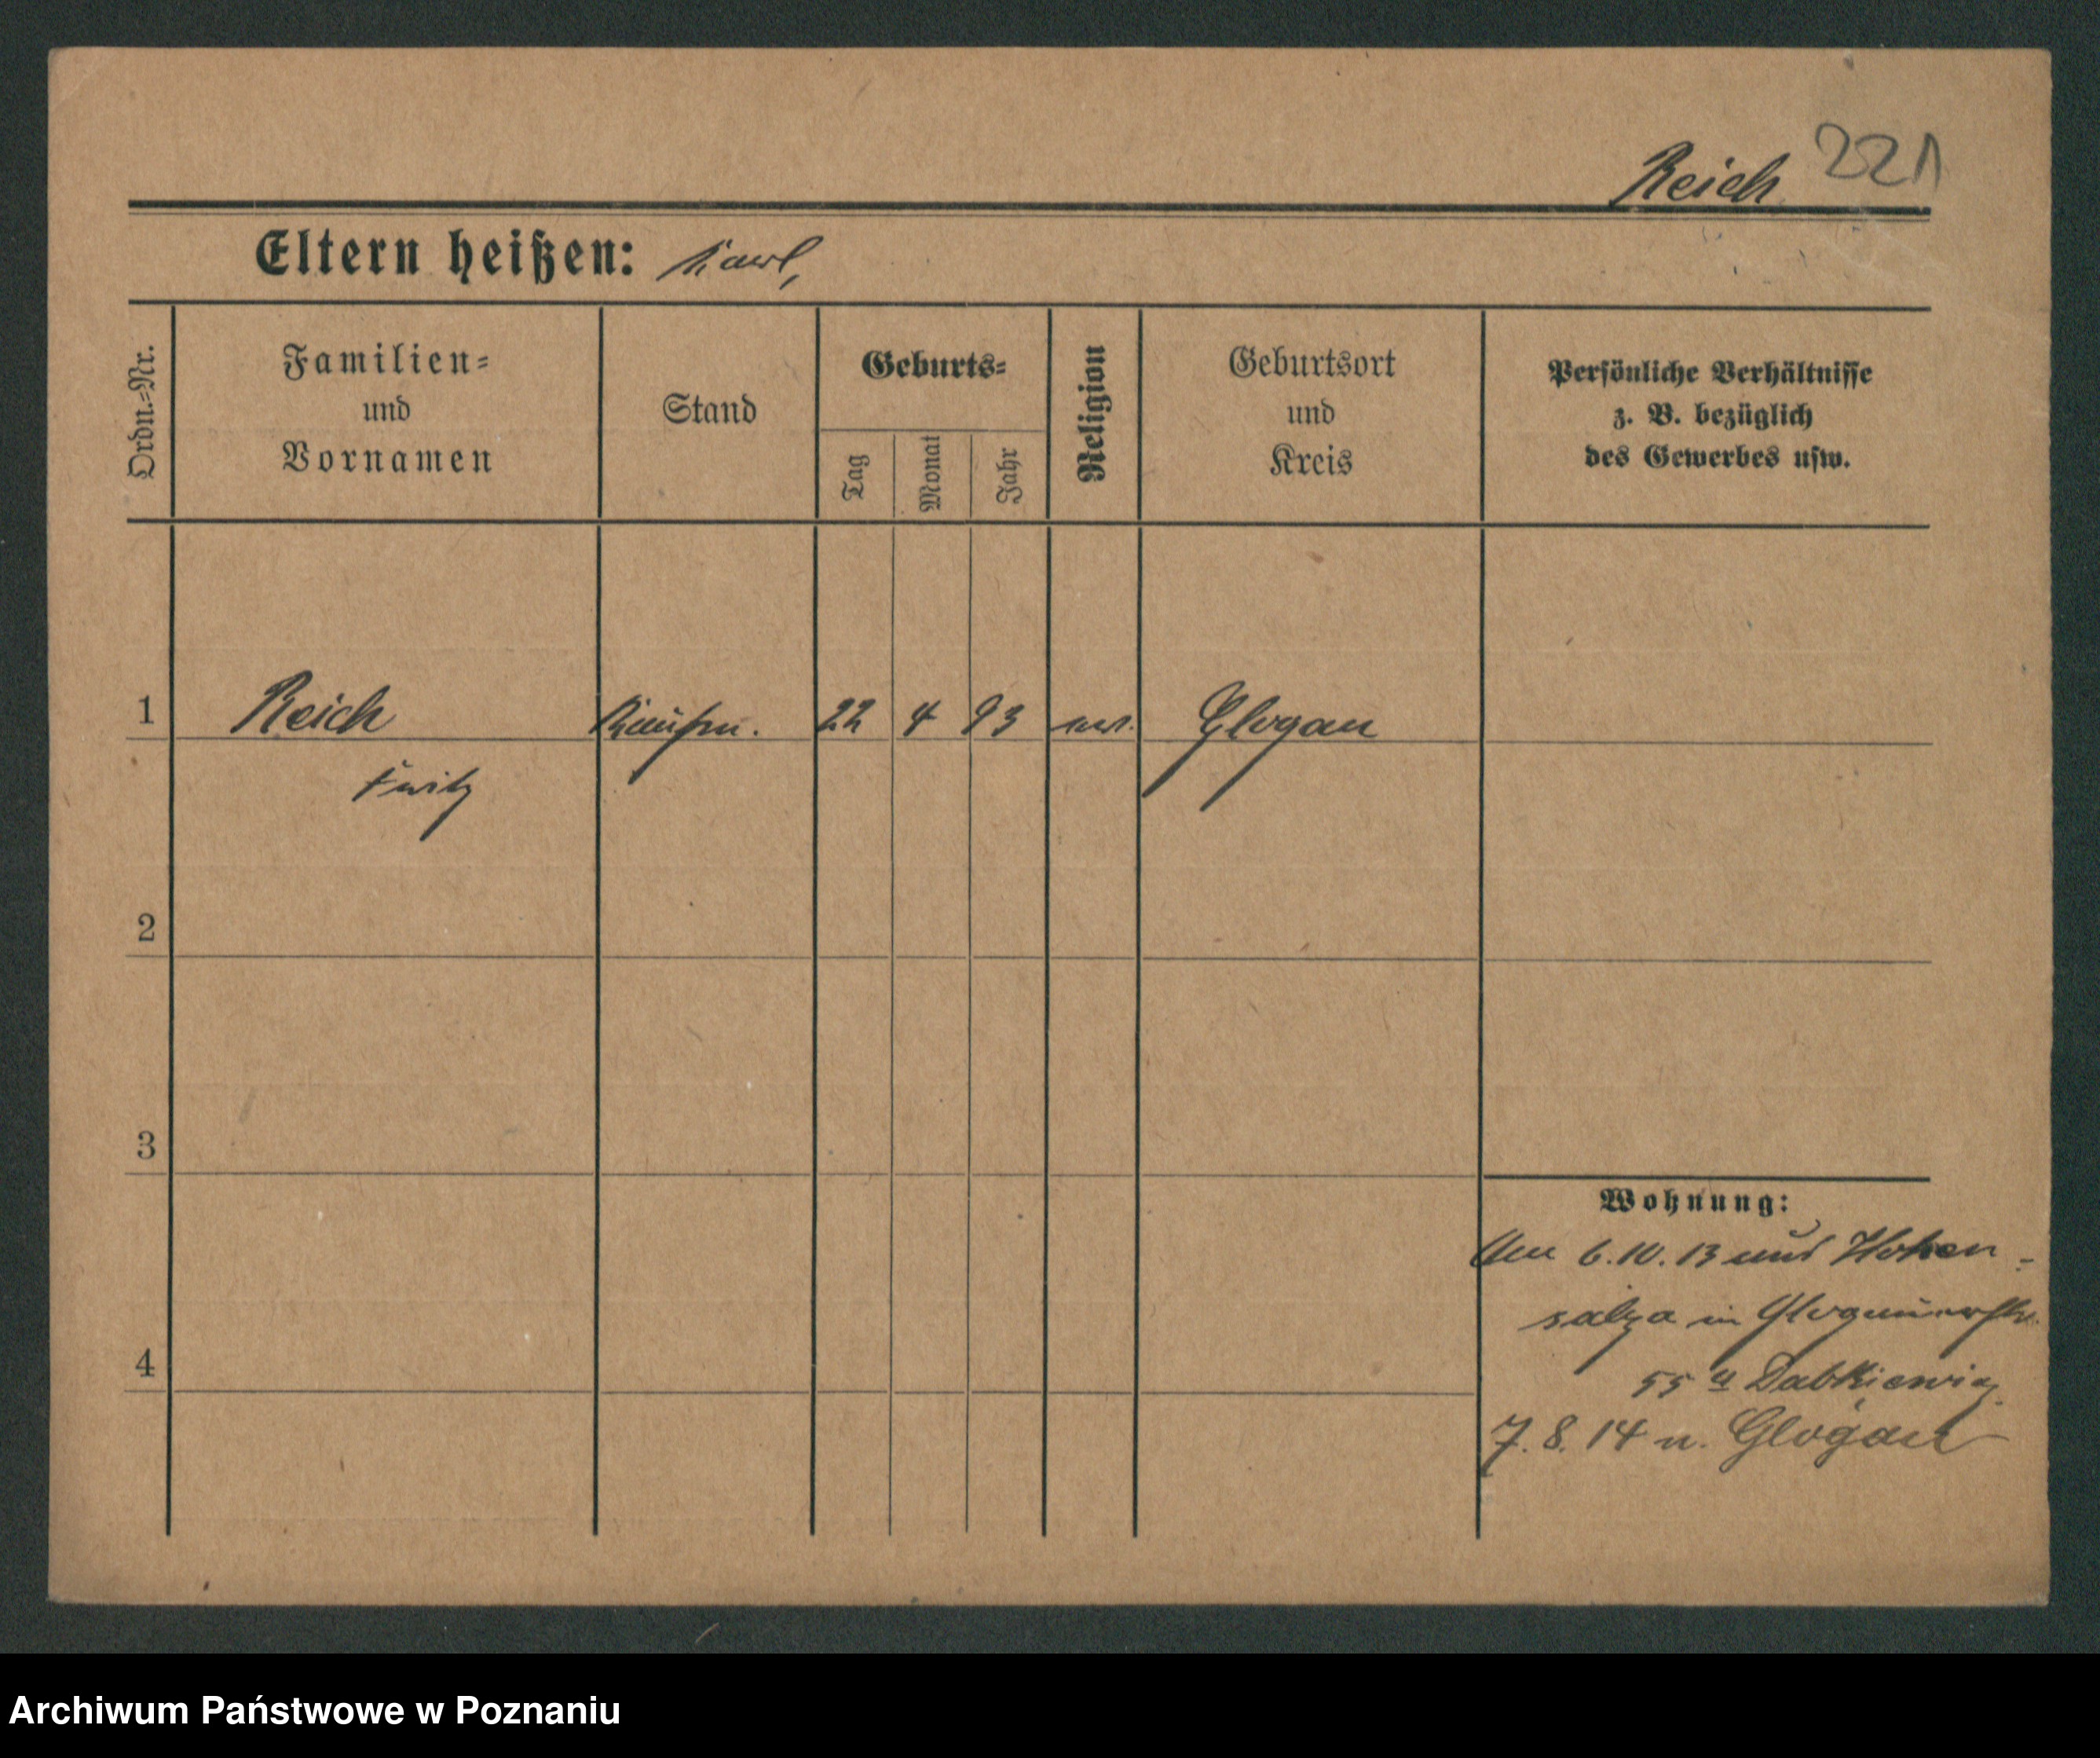 Reich 221
Eltern heißen: Karl,
Ordn.-Nr.
Familien-
und
Vornamen
Stand
Geburts-
Tag
Monat
Jahr
Religion
Geburtsort
und
Kreis
Persönliche Verhältnisse
z. B. bezüglich
des Gewerbes usw.
1 Reich Kaufm. 22 4 93 Glogau
Fritz
2
3
4
Wohnung:
6.10.13 aus Hohen-
salza in Glogauerstr.
55 Dabkiewicz
7.8.14 n. Glogau
Archiwum Państwowe w Poznaniu